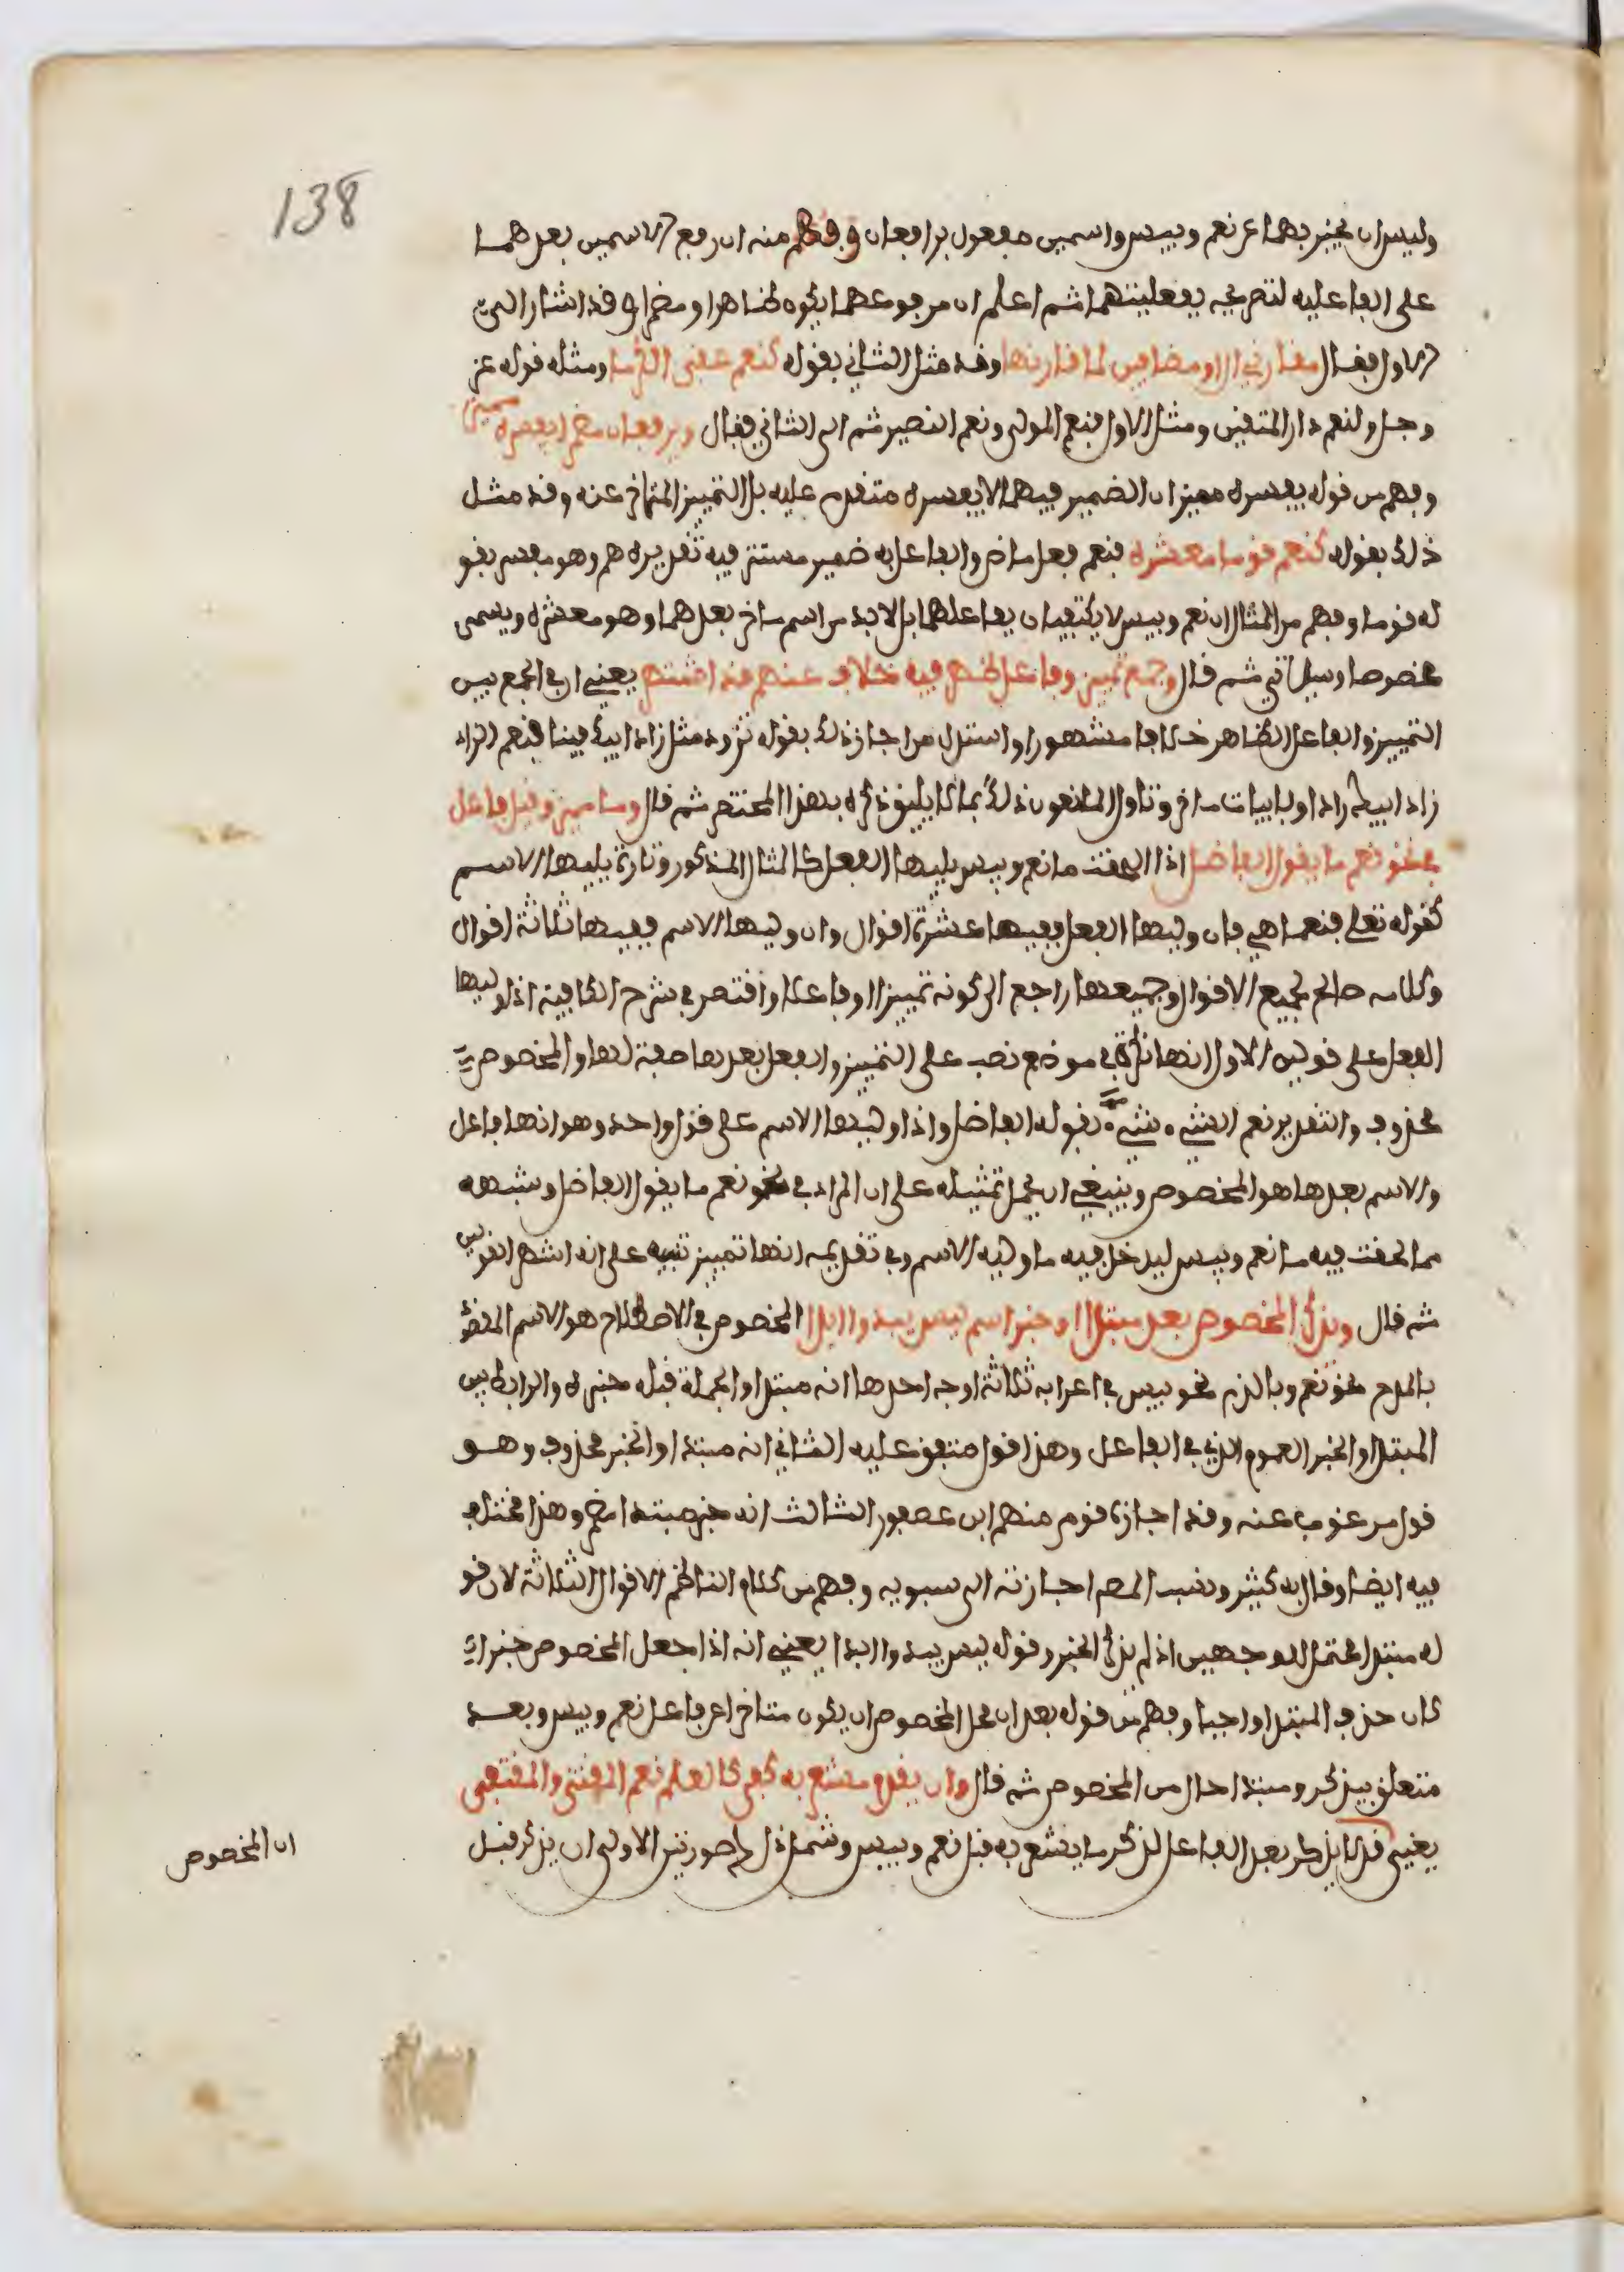 138
وليس ان يخبر بهما عن نعم وبيس واسمين مفعول برافعان وفهم منه ان رفع الاسمين بعدهما
على الفاعلية لتصريحه بفعليتهما ثم اعلم ان مرفوعهما يكون ظاهرا ومضمرا وقد اشار الى
الاول فقال مقارني ال او مضافين لما قارنها وقد مثل الثاني بقوله كنعم عقبى الكرما ومثله قوله عز
وجل ولنعم دار المتقين ومثل الاول فنعم المولى ونعم النصير ثم الى الثاني فقال ويرفعان مضمرا يفسره مميز
وفهم من قوله يفسره مميز ان الضمير فيهما لا يفسره متقدم عليه بل التمييز المتاخر عنه وقد مثل
ذلك بقوله كنعم قوما معشره فنعم فعل ماض والفاعل به ضمير مستتر فيه تقديره هم وهو مفسر بقو
له قوما وفهم من المثال ان نعم وبيس لا يكتفيان بفاعلهما بل لابد من اسم ءاخر بعدهما وهو معشره ويسمى
مخصوصا وسياتي ثم قال وجمع تمييز وفاعل ظهر فيه خلاف عنهم قد اشتهر يعني ان في الجمع بين
التمييز والفاعل الظاهر خلافا مشهورا واستدل من اجاز ذلك بقوله تزود مثل زاد ابيك فينا فنعم الزاد
زاد ابيك زادا وبابيات ءاخر وتاول المانعون ذلك بما لا يليق ذكره بهذا المختصر ثم قال وما مميز وقيل فاعل
في نحو نعم ما يقول الفاضل اذا الحقت ما نعم وبيس يليها الفعل كالمثال المذكور وتارة يليها الاسم
كقوله تعلى فنعما هي فان وليها الفعل ففيها عشرة اقوال وان وليها الاسم ففيها ثلاثة اقوال
وكلامه صالح لجميع الاقوال وجميعها راجع الى كونه تمييزا او فاعلا واقتصر في شرح الكافية اذا وليها
الفعل على قولين الاول انها نكرة في موضع نصب على التمييز والفعل بعدها صفة لها والمخصوص
محذوف والتقدير نعم الشيء شيء يقوله الفاضل واذا وليها الاسم على قول واحد وهو انها فاعل
والاسم بعدها هو المخصوص وينبغي ان يحمل تمثيله على ان المراد في نحو نعم ما يقول الفاضل وشبهه
مما لحقت فيه ما نعم وبيس ليدخل فيه ما وليه الاسم وفي تقديمه انها تمييز تنبيه على انه اشهر القولين
ثم قال ويذكر المخصوص بعد مبتدا او خبر اسم ليس يبدو ابدا المخصوص في الاصطلاح هو الاسم المقصود
بالمدح نحو نعم وبالذم نحو بيس في اعرابه ثلاثة اوجه احدها انه مبتدا والجملة قبله خبره والرابط بين
المبتدا والخبر العموم الذي في الفاعل وهذا قول متفق عليه الثاني انه مبتدا والخبر محذوف وهو
قول مرغوب عنه وقد اجازه قوم منهم ابن عصفور الثالث انه خبر مبتدا مضمر وهذا مختلف
فيه ايضا وقال به كثير ونسب المص اجازته الى سبويه وفهم من كلام الناظم الاقوال الثلاثة لان قو
له مبتدا محتمل لوجهين اذ لم يذكر الخبر وقوله ليس يبدو ابدا يعني انه اذا جعل المخصوص خبرا
كان حذف المبتدا واجبا وفهم من قوله بعد ان محل المخصوص ان يكون متاخرا عن فاعل نعم وبيس وبعد
متعلق بيذكر ومبتدا حال من المخصوص ثم قال وان يقدم مشعر به كفى كالعلم نعم المقتنى والمقتفى
يعني قد لا يذكر بعد الفاعل لذكر ما يشعر به قبل نعم وبيس وشمل ذلك صورتين الاولى ان يذكر قبل
ان المخصوص